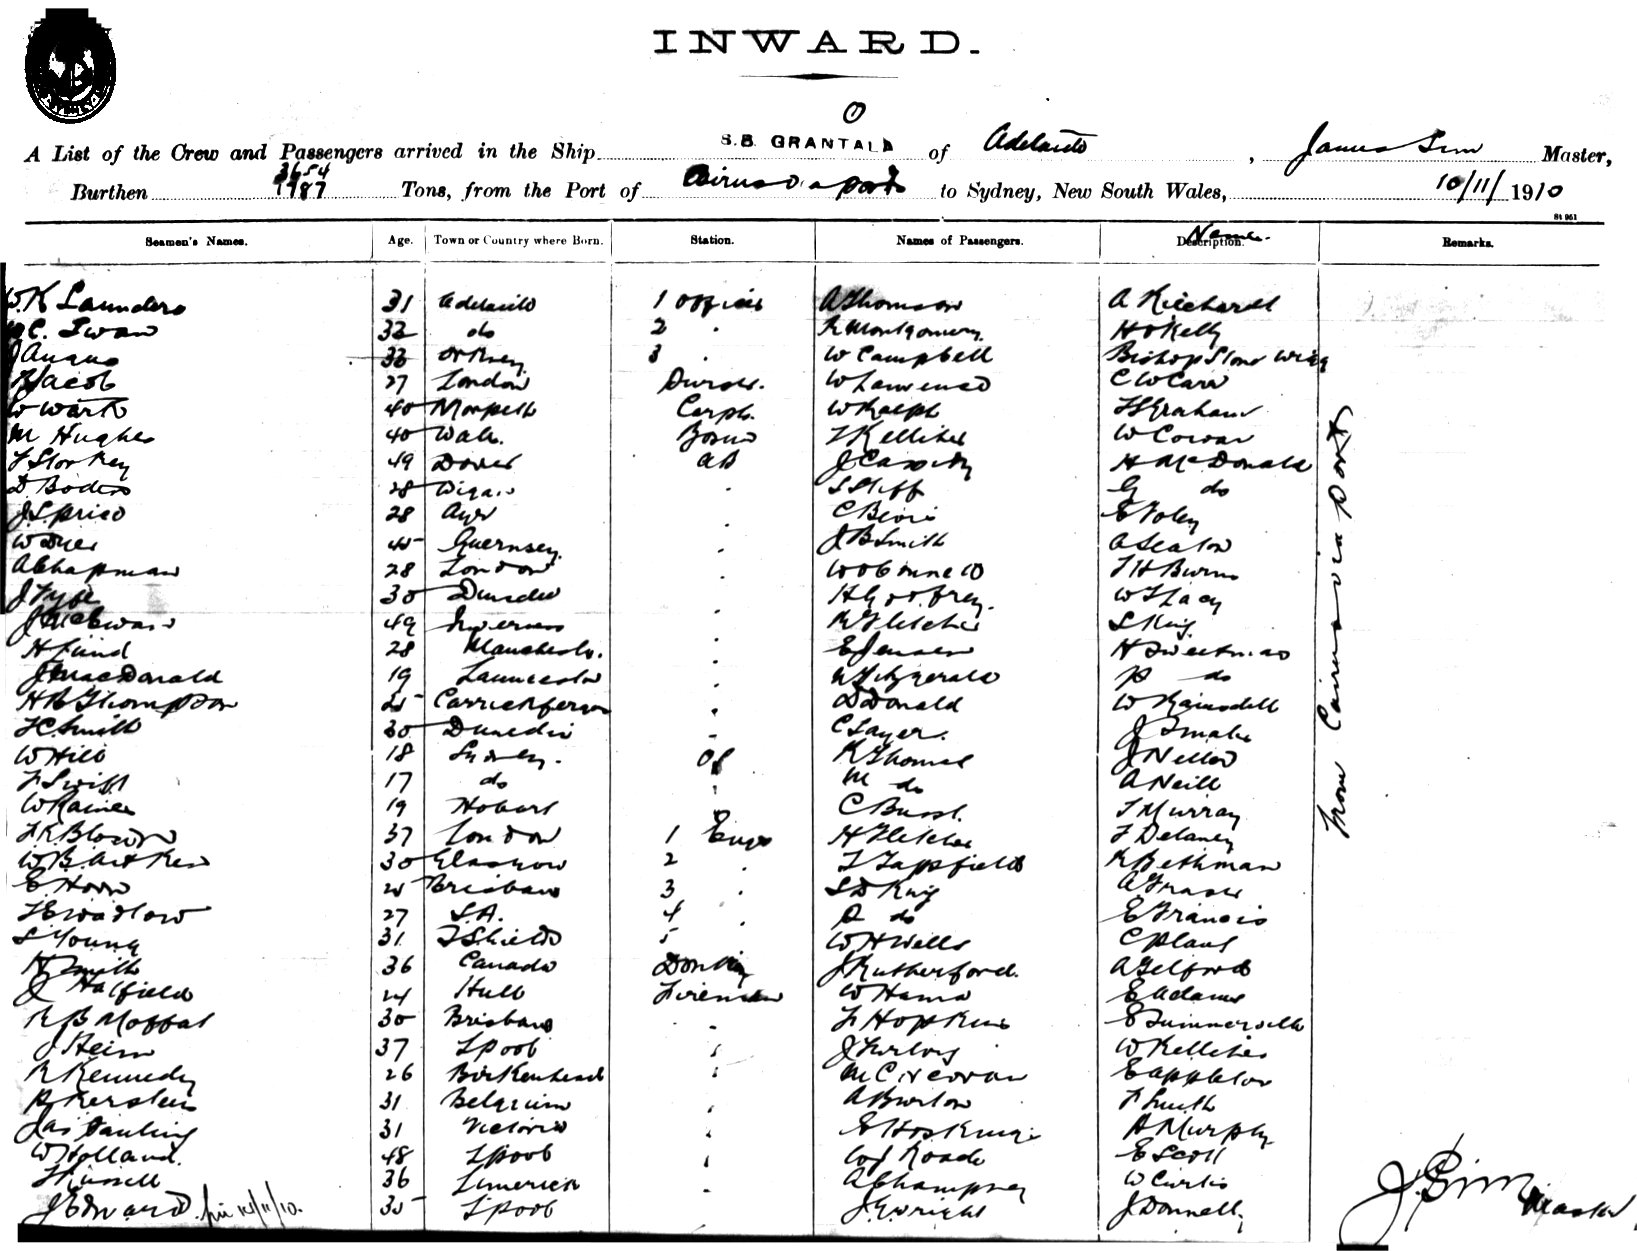 INWARD.
A List of the Crew and Passengers arrived in the Ship S.S. GRANTALA of Adelaide, James Sim Master,
3654
Burthen 1787 Tons, from the Port of to Sydney, New South Wales, 10/11/1910
St 951
Seamen's Names. Age. Town or Country where Born. Station. Names of Passengers. Description. Names. Remarks.
W.K Saunders 31 Adelaide 1 Officer A Thomson A Richards
C. Swan 32 do 2 " R Montgomery H O Kelly
J Angus 33 Orkney 3 " W Campbell Bishop Stone Wigg
Jacob 27 London W Lawrence C W Carr
W Wark 40 Morpeth Carp. W Ralph Graham
M Hughes 40 Wales Bosun T Kelliher W Cowan
F Storkey 49 Dover AB J Cassidy H McDonald
D Boden 28 Wigan " S Stiff G do
J.S. Price 28 Ayr " C Bevis E Foley
W Dyer 45 Guernsey. " J B Smith A Seaton
A Chapman 28 London " T H Burns
J Fyfe 30 Dundee " H Goofrey. W T Lacy
J McEwan 49 Inverness " R Fletcher S King
H Lund 28 Manchester. " E Jensen H Sweetman
J MacDonald 19 Launceston " Fitzgerald P do
H R Thompson 25 Carrickfergus " D Donald W Ramsdell
F C Smith 30 Dunedin " C Sayer. J
W Hill 18 Sydney. OS R Thomas J
F Swift 17 do " M do A Neill
W Rainer 19 Hobart " C Bussl. T Murray
F R Blown 37 London 1 Engr H Fletcher F Delaney
W B Aitken 30 Glasgow 2 " T Tapsfield R Bethman
E Horn 25 Brisbane 3 " S D King A Fraser
Wadlow 27 S.A. 4 " do E Francis
S Young 31 S Shields 5 W H Wells C Plant
H Smith 36 Canada Donkey J Rutherford. A Telford
J Hatfield 24 Hull Fireman W Hanna E Adams
R B Moffat 30 Brisbane " F Hopkins E Summerville
J Heirn 37 Lpool " J Furlong W Kelliher
R Kennedy 26 Birkenhead " M C E Appleton
P Kersten 31 Belgium " A Burton F Smith
Jas Pauling 31 Victoria " E Hosking A Murphy
W Holland. 48 Lpool " W J Roade E Scott
Russell 36 Limerick " A Champney W Curtis
J Edward 35 Lpool J. Wright J Donnelly
From Carnarvia ports
J. Sim Master